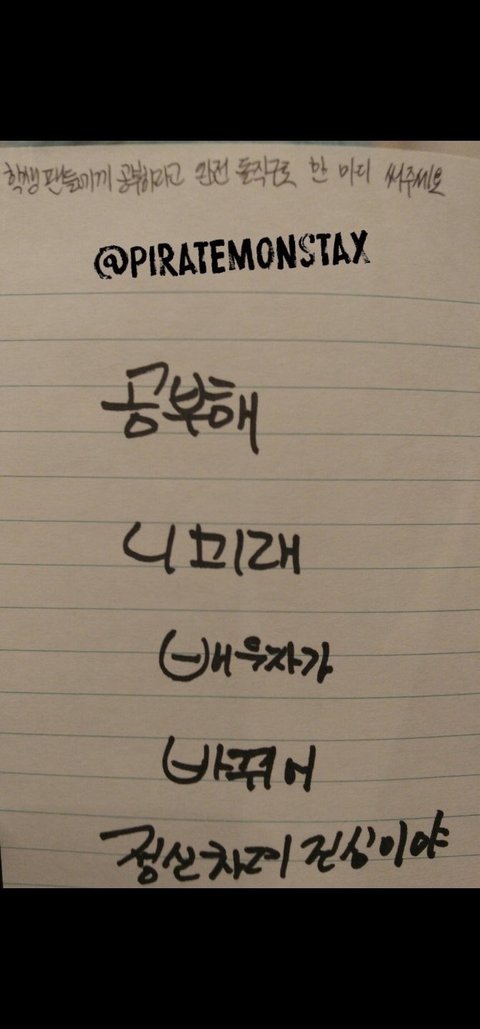 학생 팬들에게 공부하라고 완전 돌직구로 한 마디 써주세요
@PIRATEMONSTAX
공부해
니 미래
배우자가
바뀌어
정신차려 진심이야